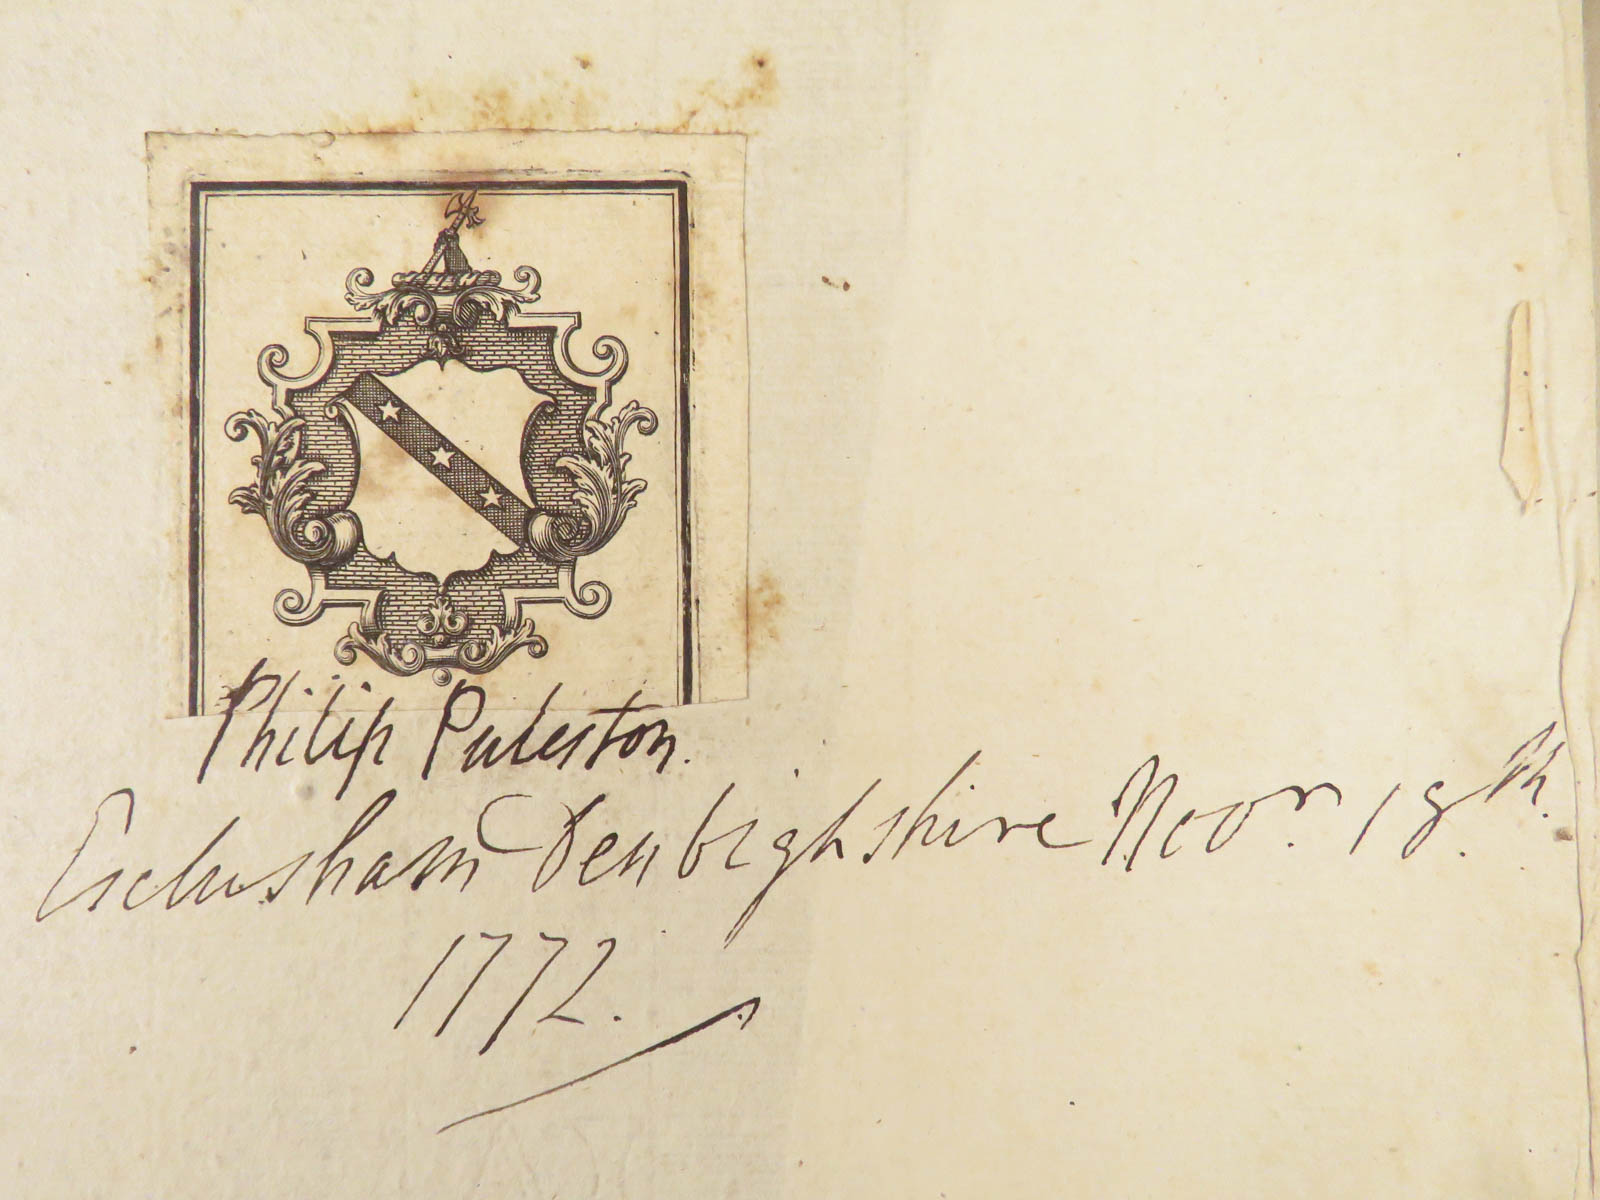 Philip Puleston.
Esclusham Denbighshire Novr. 18th.
1772.